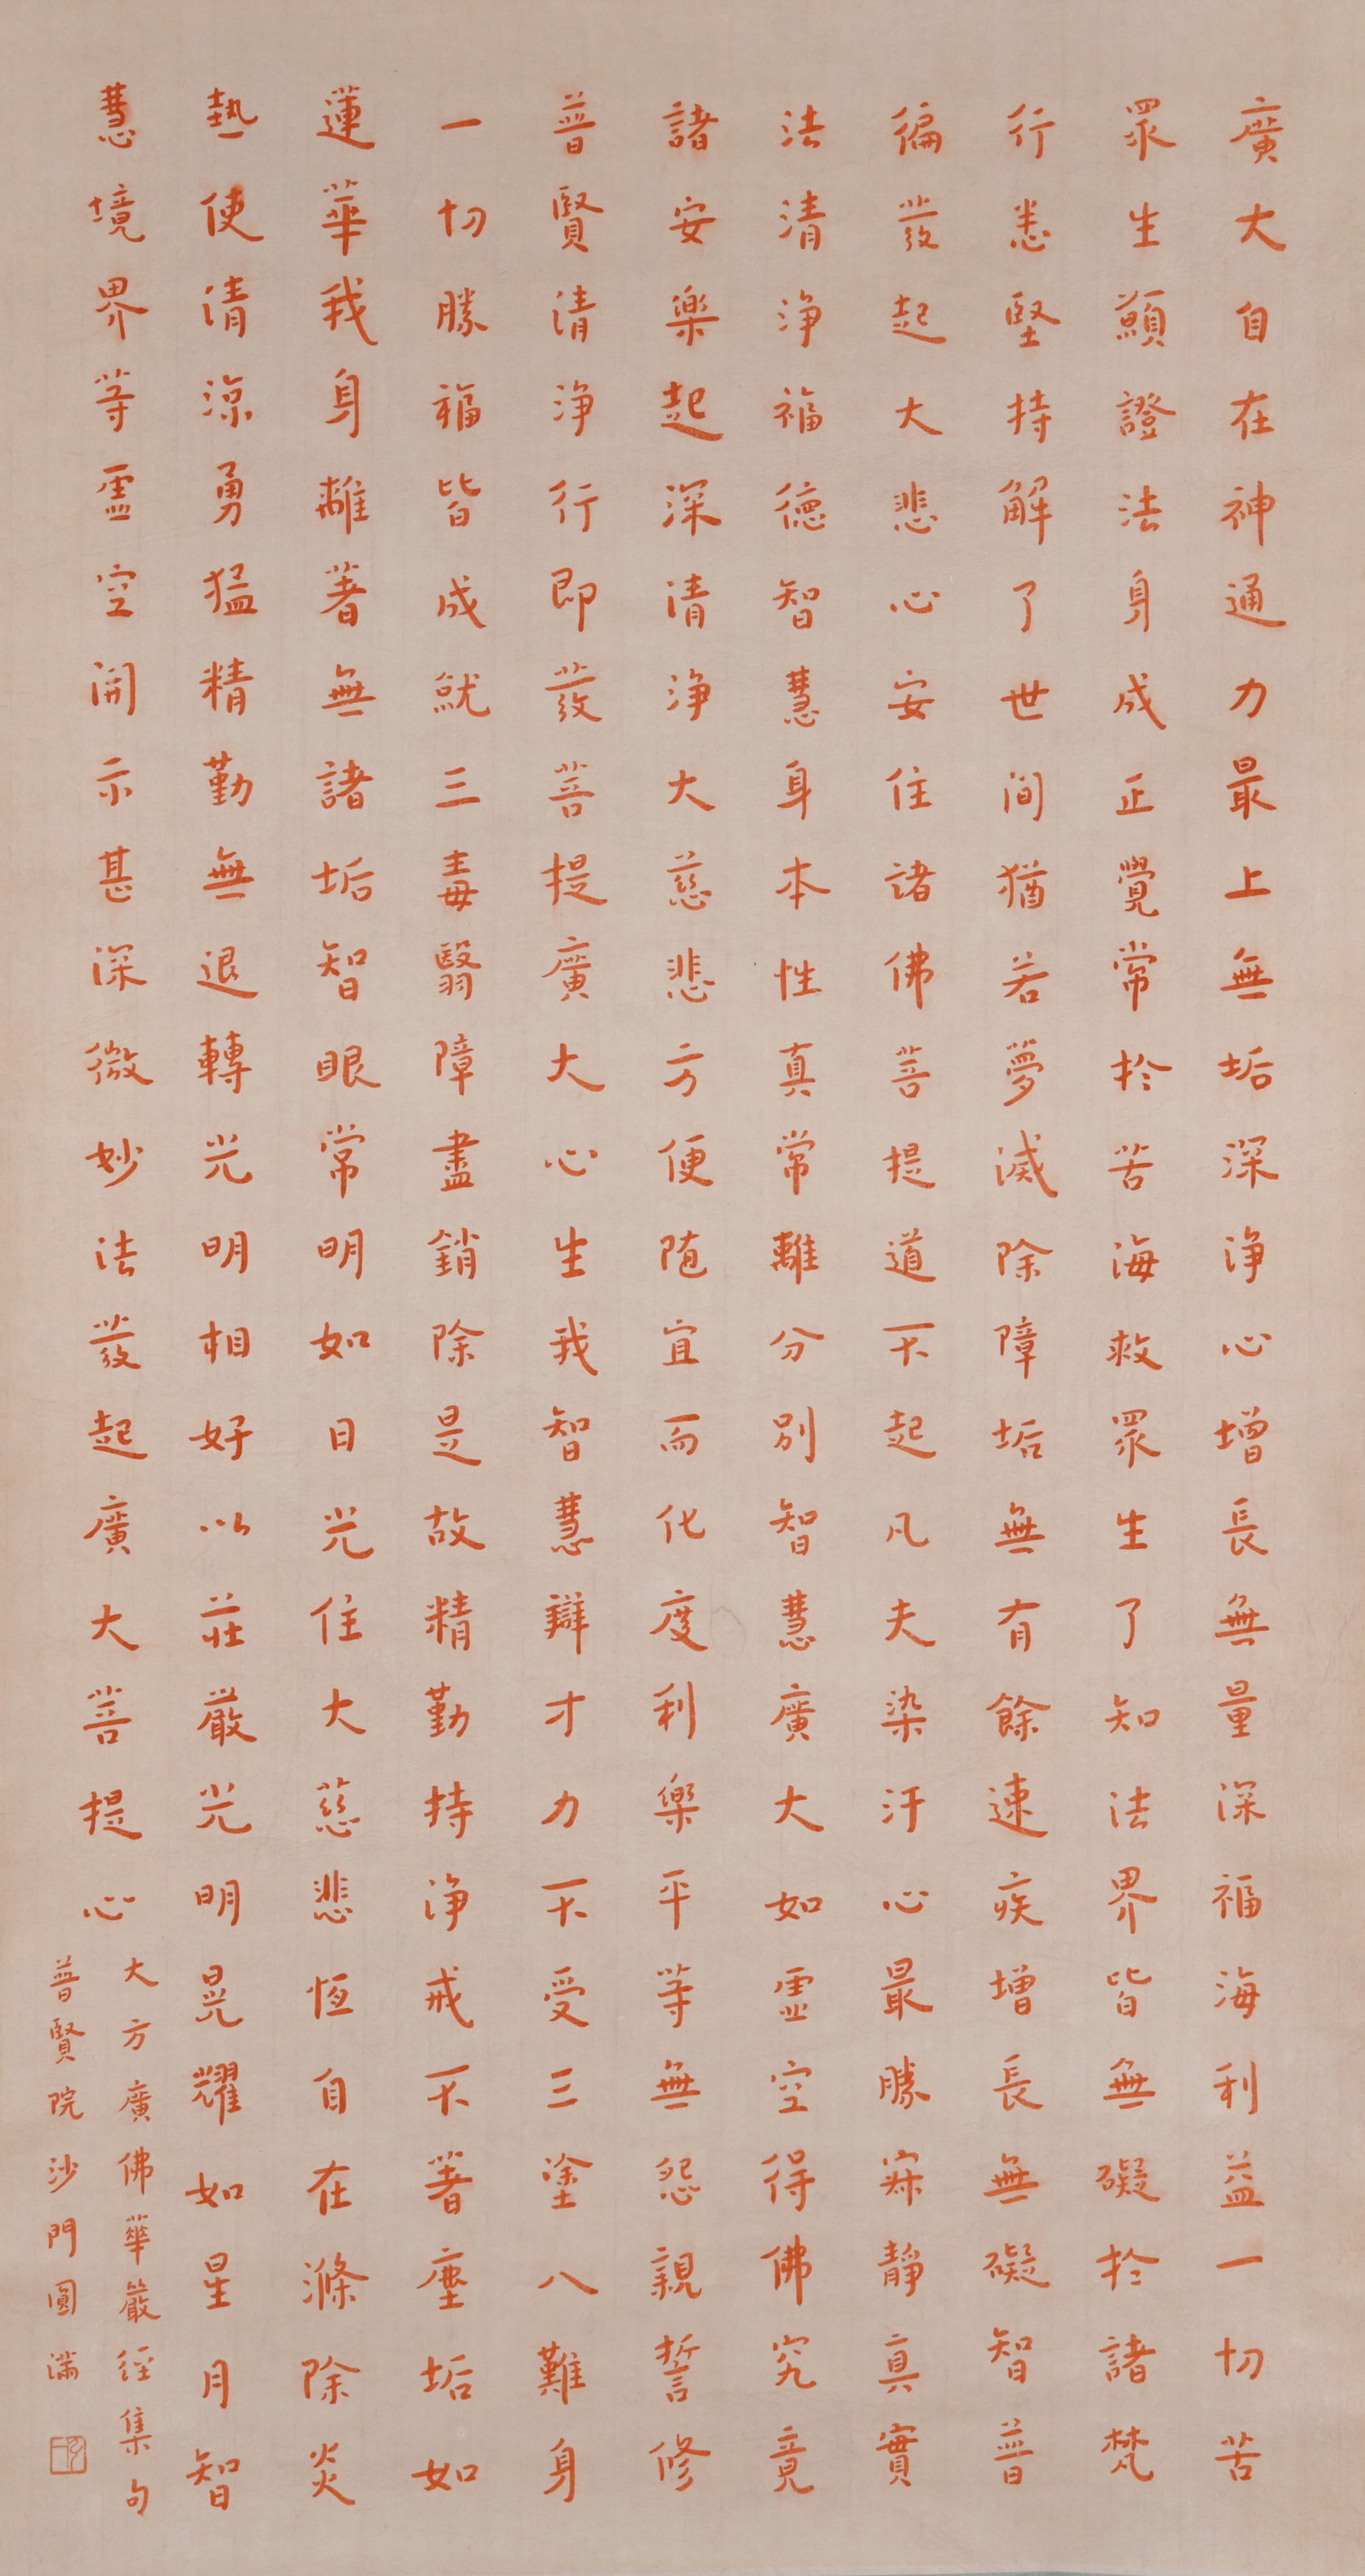 廣大自在神通力最上無垢深淨心增長無量深福海利益一切苦
眾生願證法身成正覺常於苦海救眾生了知法界皆無礙於諸梵
行悉堅持解了世間猶若夢滅除障垢無有餘速疾增長無礙智普
徧發起大悲心安住諸佛菩提道不起凡夫染汙心最勝寂靜真實
法清淨福德智慧身本性真常離分別智慧廣大如虛空得佛究竟
諸安樂起深清淨大慈悲方便随宜而化度利樂平等無怨親誓修
普賢清淨行即發菩提廣大心生我智慧辯才力不受三塗八難身
一切勝福皆成就三毒翳障盡銷除是故精勤持淨戒不著塵垢如
蓮華我身離著無諸垢智眼常明如日光住大慈悲恆自在滌除炎
熱使清涼勇猛精勤無退轉光明相好以莊嚴光明晃耀如星月智
慧境界等虛空開示甚深微妙法發起廣大菩提心
大方廣佛華嚴經集句
普賢院沙門圓滿